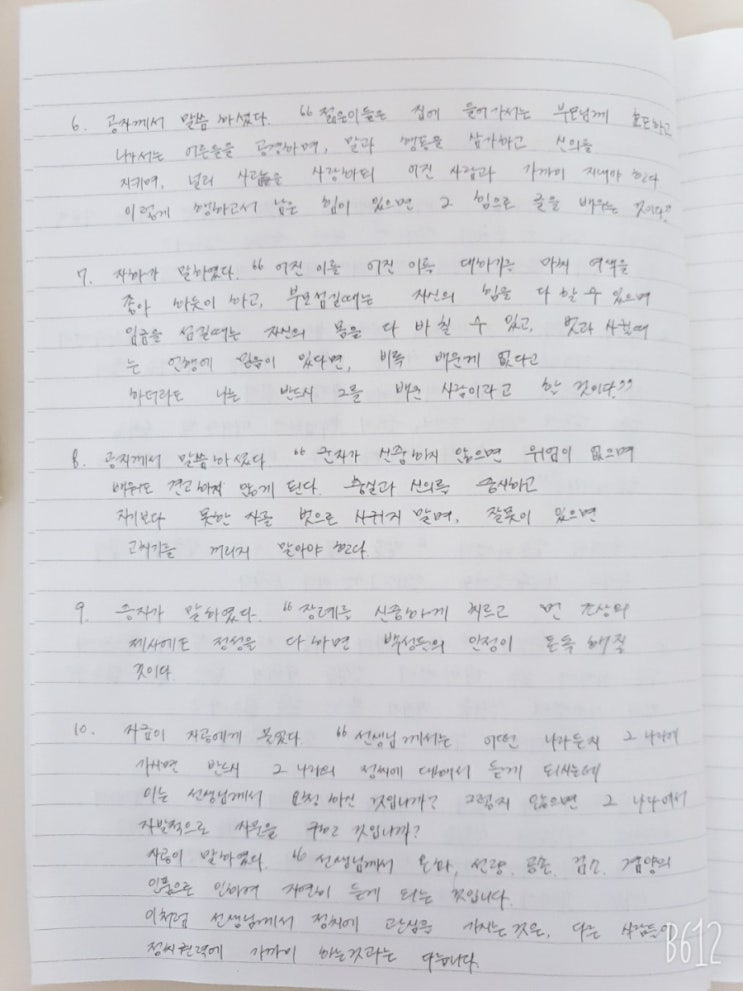 6. 공자께서 말씀하셨다. "젊은이들은 집에 들어가서는 부모님께 효도하고
나가서는 어른들을 공경하며, 말과 행동을 삼가하고 신의를
지키며, 널리 사람들을 사랑하되 어진 사람과 가까이 지내야 한다
이렇게 행하고서 남은 힘이 있으면 그 힘으로 글을 배우는 것이다"
7. 자하가 말하였다. "어진 이를 어진 이로 대하기를 마치 여색을
좋아 하듯이 하고, 부모섬길때는 자신의 힘을 다 할 수 있으며
임금을 섬길때는 자신의 몸을 다 바칠 수 있고, 벗과 사귈때
는 언행에 믿음이 있다면, 비록 배운게 없다고
하더라도 나는 반드시 그를 배운 사람이라고 할 것이다."
8. 공자께서 말씀하셨다 "군자가 신중하지 않으면 위엄이 없으며
배워도 견고하지 않게 된다. 충실과 신의를 중시하고
자기보다 못한 자를 벗으로 사귀지 말며, 잘못이 있으면
고치기를 꺼리지 말아야 한다.
9. 증자가 말하였다. "장례를 신중하게 치르고 먼 조상의
제사에도 정성을 다하면 백성들의 인정이 돈독해질
것이다.
10. 자금이 자공에게 물었다 "선생님께서는 어떤 나라든지 그 나라에
가시면 반드시 그 나라의 정치에 대해서 듣게 되시는데
이는 선생님께서 요청하신 것입니까? 그렇지 않으면 그 나라에서
자발적으로 자문을 구한 것입니까?
자공이 말하였다. "선생님께서 온화, 선량, 공손, 검소, 겸양의
인품으로 인하여 자연히 듣게 되는 것입니다.
이처럼 선생님께서 정치에 관심을 가지는 것은, 다른 사람들이
정치권력에 가까이 하는것과는 다릅니다.
B612